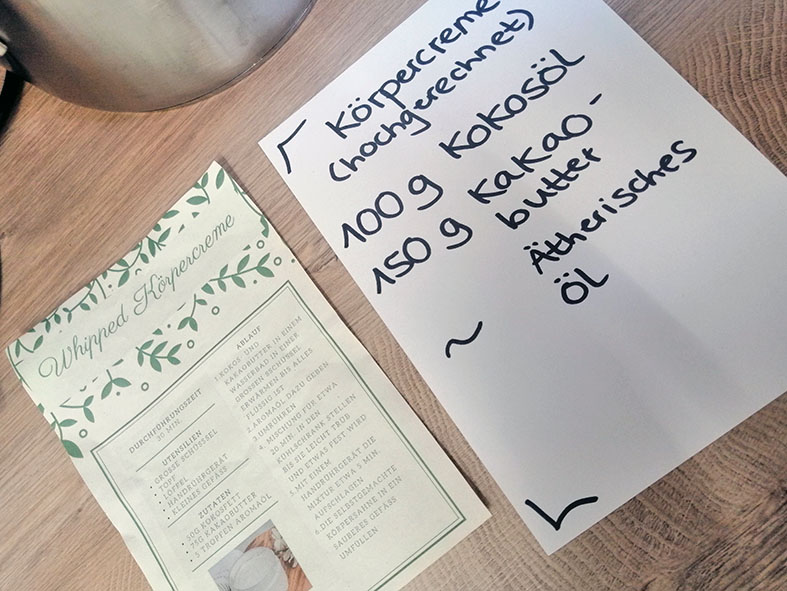 Körpercreme
(hochgerechnet)
100 g Kokosöl
150 g Kakao-
butter
~ Ätherisches
Öl
Whipped Körpercreme
DURCHFÜHRUNGSZEIT
30 MIN.
UTENSILIEN
• GROSSE SCHÜSSEL
• TOPF
• LÖFFEL
• HANDRÜHRGERÄT
• KLEINES GEFÄSS
ZUTATEN
• 50G KOKOSFETT
• 75G KAKAOBUTTER
• 5 TROPFEN AROMAÖL
ABLAUF
1. KOKOS- UND
KAKAOBUTTER IN EINEM
WASSERBAD IN EINER
GROSSEN SCHÜSSEL
ERWÄRMEN BIS ALLES
FLÜSSIG IST
2. AROMAÖL DAZU GEBEN
3. UMRÜHREN
4. MISCHUNG FÜR ETWA
20 MIN. IN DEN
KÜHLSCHRANK STELLEN
BIS SIE LEICHT TRÜB
UND ETWAS FEST WIRD
5. MIT EINEM
HANDRÜHRGERÄT DIE
MIXTUR ETWA 5 MIN.
AUFSCHLAGEN
6. DIE SELBSTGEMACHTE
KÖRPERSAHNE IN EIN
SAUBERES GEFÄSS
UMFÜLLEN